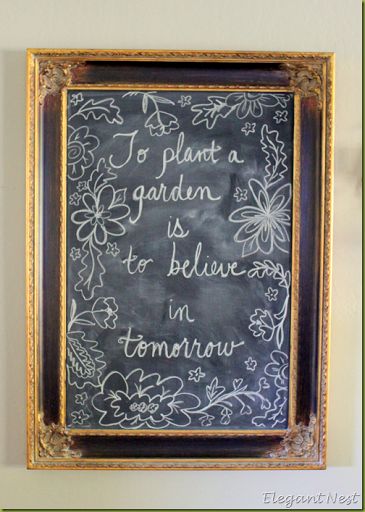 To plant a
garden
is
to believe
in
tomorrow
Elegant Nest